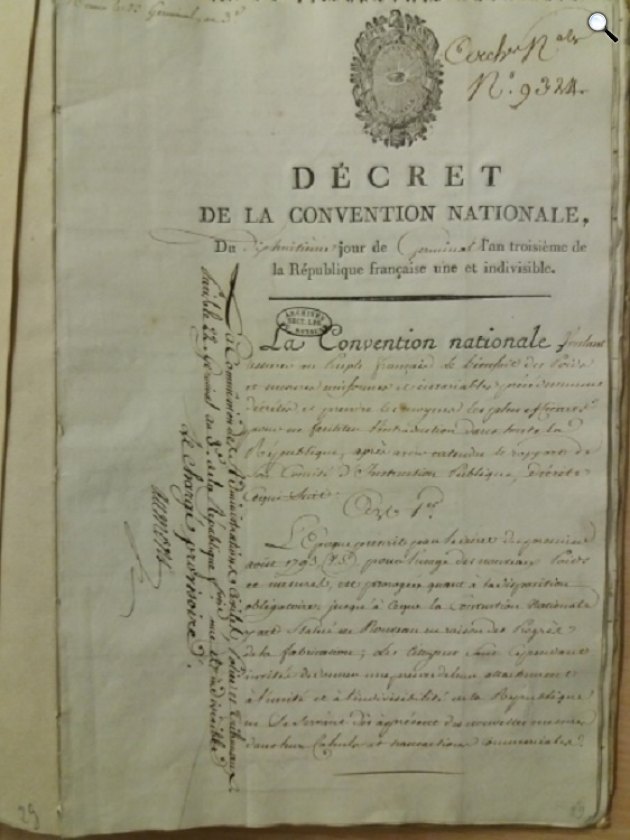 Germinal, an 3e
N°. 9324.
DÉCRET
DE LA CONVENTION NATIONALE,
Du dixhuitième jour de Germinal l'an troisième de
la République française une et indivisible.
ARCHIVES
La Convention nationale, voulant
assurer au Peuple français le bienfait des Poids
et mesures uniformes et invariables précédemment
décrétés et prendre les moyens les plus efficaces
pour en faciliter l'introduction dans toute la
République, après avoir entendu le rapport de
son Comité d'Instruction Publique, Décrete
Ceque Suit:
Art. 1er.
L'Epoque prescrite par le décret du premier
août 1793 (V.S.), pour l'usage des nouveaux Poids
et mesures, est prorogée quant à sa disposition
obligatoire, jusqu'à ceque la Convention Nationale
y ait Statué de Nouveau en raison des Progrès
de la fabrication; Les Citoyens sont Cependant
invités de donner une preuve de leur attachement
à l'unité et à l'indivisibilité de la République
en Se Servant dès àprésent des nouvelles mesures
dans leurs Calculs et transactions Commerciales.
La Commission des Administrations Civiles, Police et Tribunaux
Paris le 22 Germinal an 3e. de la République française une et indivisible
Le chargé provisoire.
29